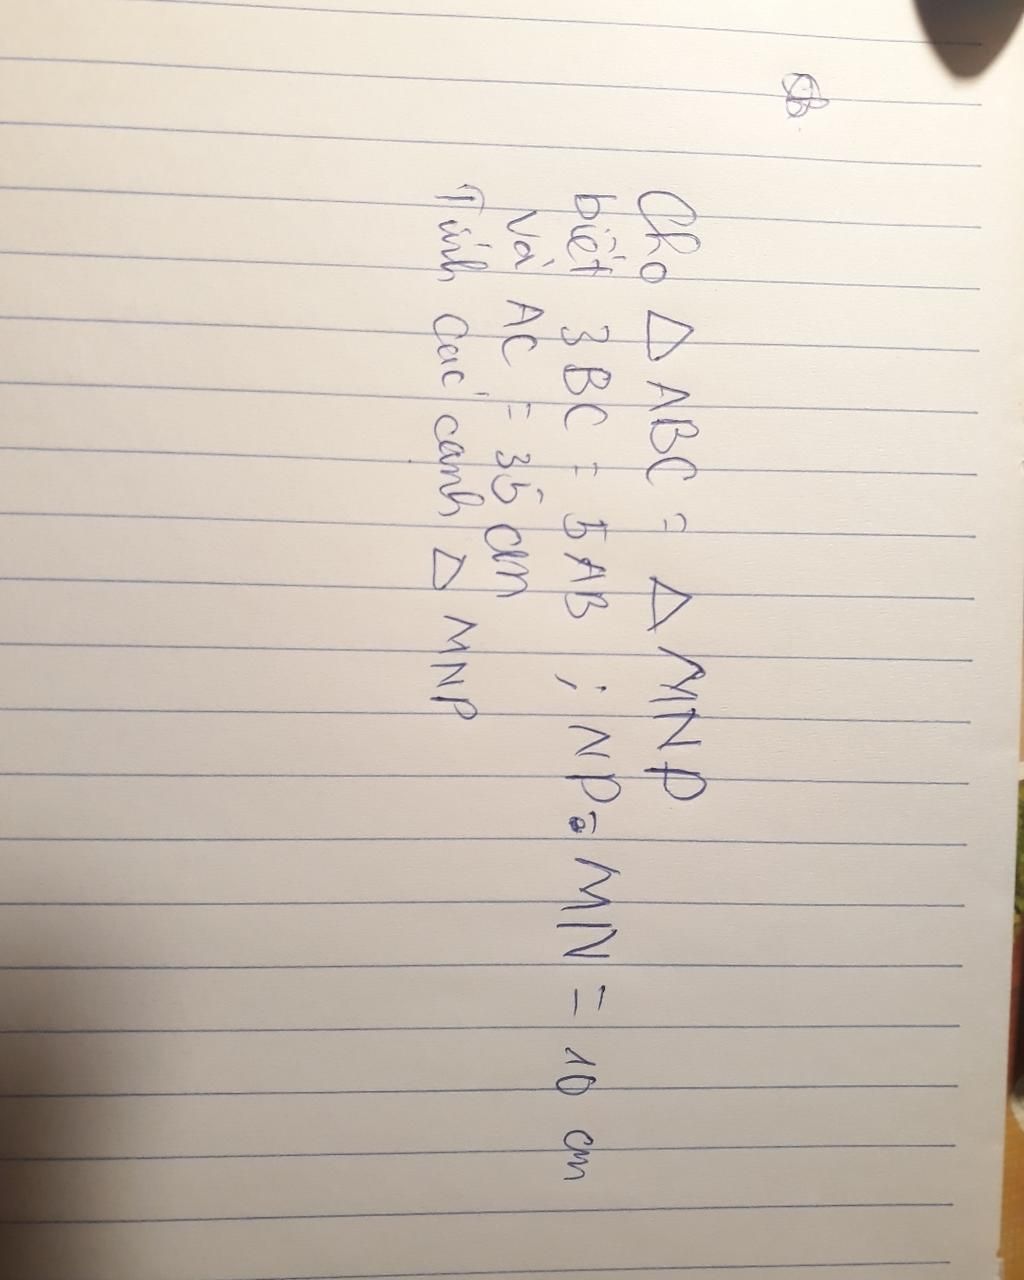 Cho △ ABC = △ MNP
biết 3BC = 5AB ; NP - MN = 10 cm
và AC = 35 cm
Tính các cạnh △ MNP